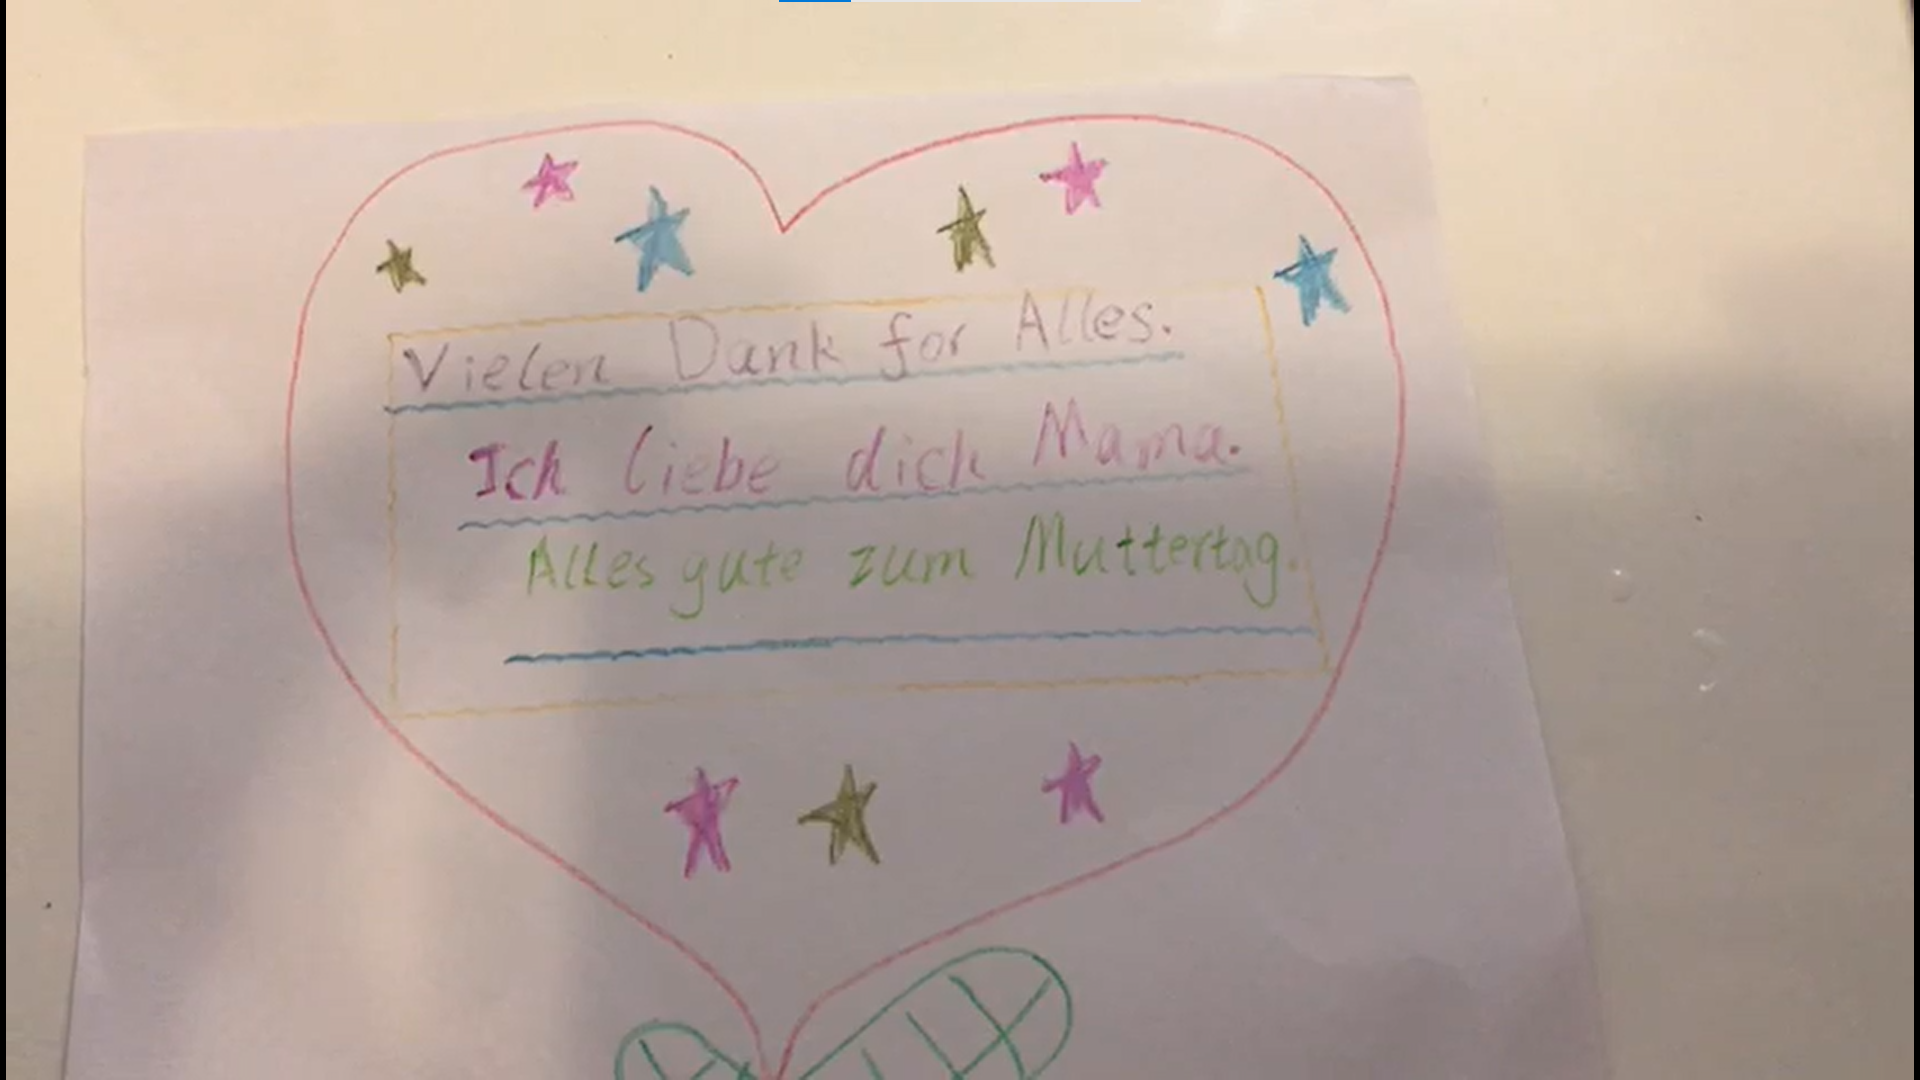 Vielen Dank for Alles.
Ich liebe dich Mama.
Alles gute zum Muttertag.